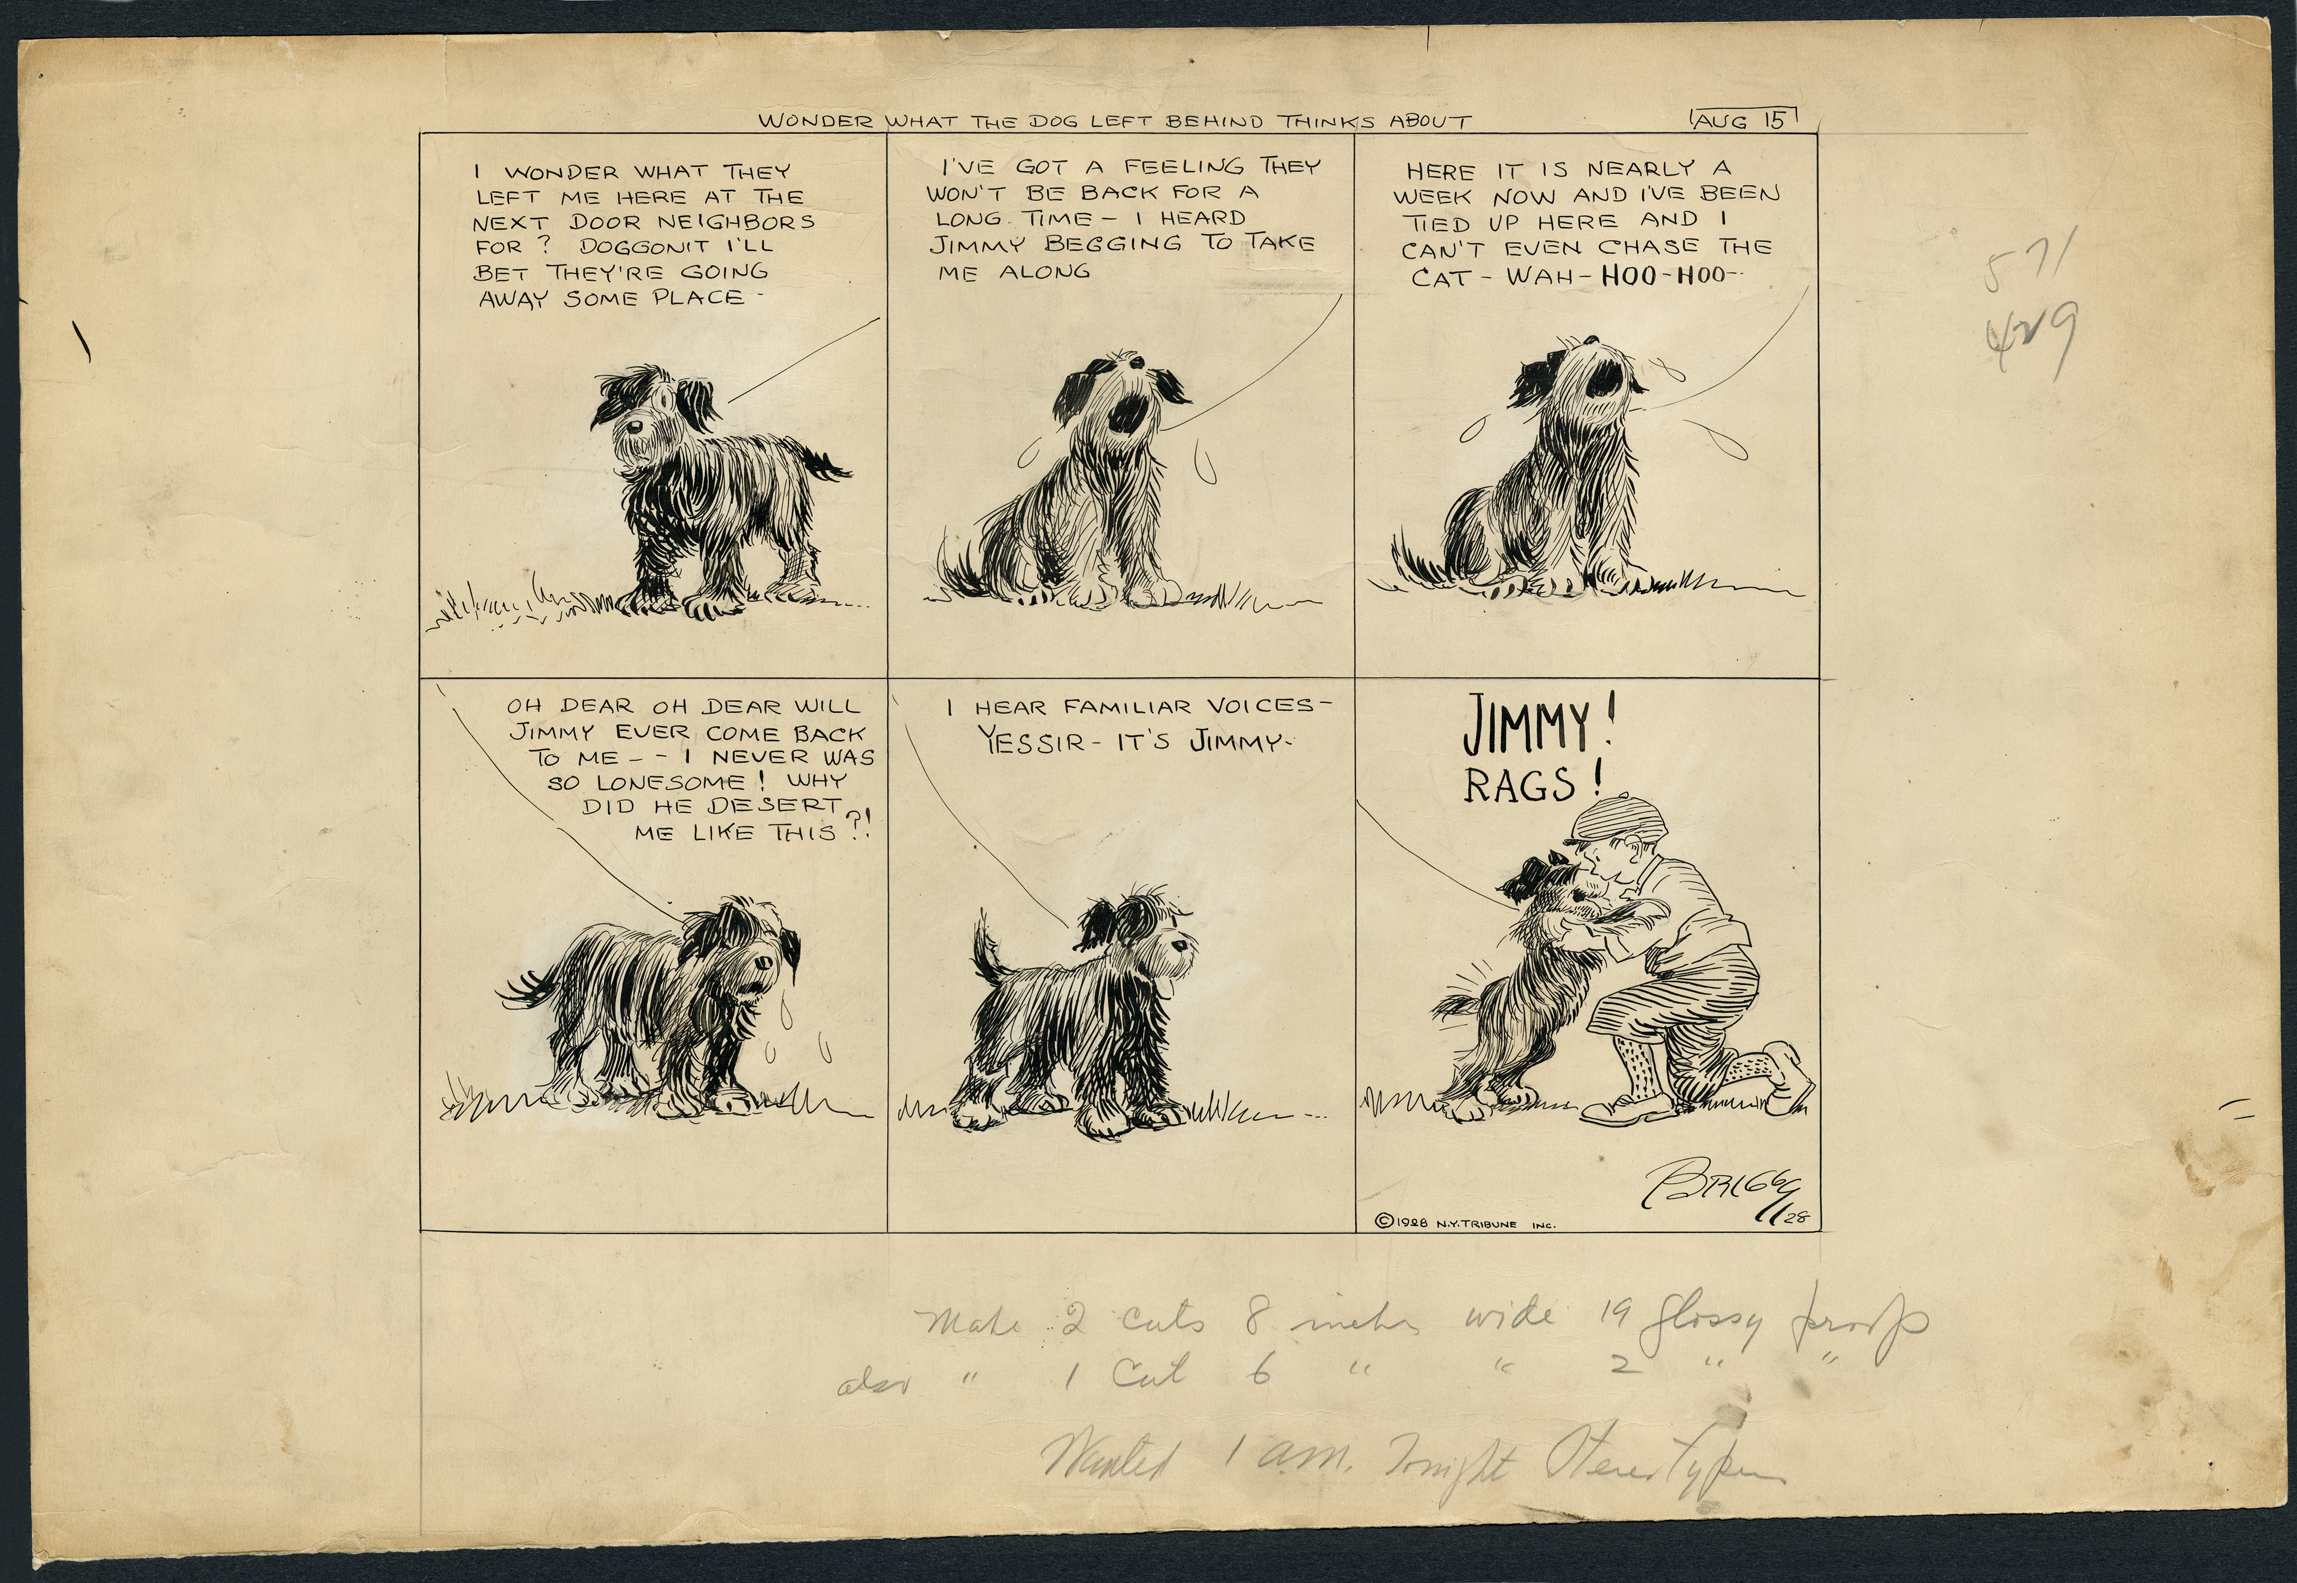 WONDER WHAT THE DOG LEFT BEHIND THINKS ABOUT
AUG 15
I WONDER WHAT THEY
LEFT ME HERE AT THE
NEXT DOOR NEIGHBORS
FOR? DOGGONIT I'LL
BET THEY'RE GOING
AWAY SOME PLACE -
I'VE GOT A FEELING THEY
WON'T BE BACK FOR A
LONG TIME - I HEARD
JIMMY BEGGING TO TAKE
ME ALONG
HERE IT IS NEARLY A
WEEK NOW AND I'VE BEEN
TIED UP HERE AND I
CAN'T EVEN CHASE THE
CAT - WAH - HOO - HOO -
571
429
OH DEAR OH DEAR WILL
JIMMY EVER COME BACK
TO ME - - I NEVER WAS
SO LONESOME! WHY
DID HE DESERT
ME LIKE THIS?!
I HEAR FAMILIAR VOICES -
YESSIR - IT'S JIMMY -
JIMMY!
RAGS!
BRIGGS
28
©1928 N.Y. TRIBUNE INC.
Make 2 cuts 8 inches wide 19 glossy proofs
also " 1 Cut 6 " " 2 " "
Wanted 1 am. Tonight